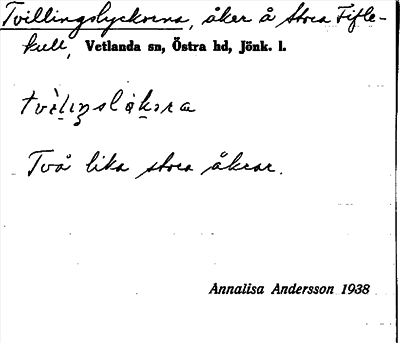 Tvillingslyckorna, åker å Stora Fifle-
kull, Vetlanda sn, Östra hd, Jönk. l.
Två lika stora åkrar.
Annalisa Andersson 1938